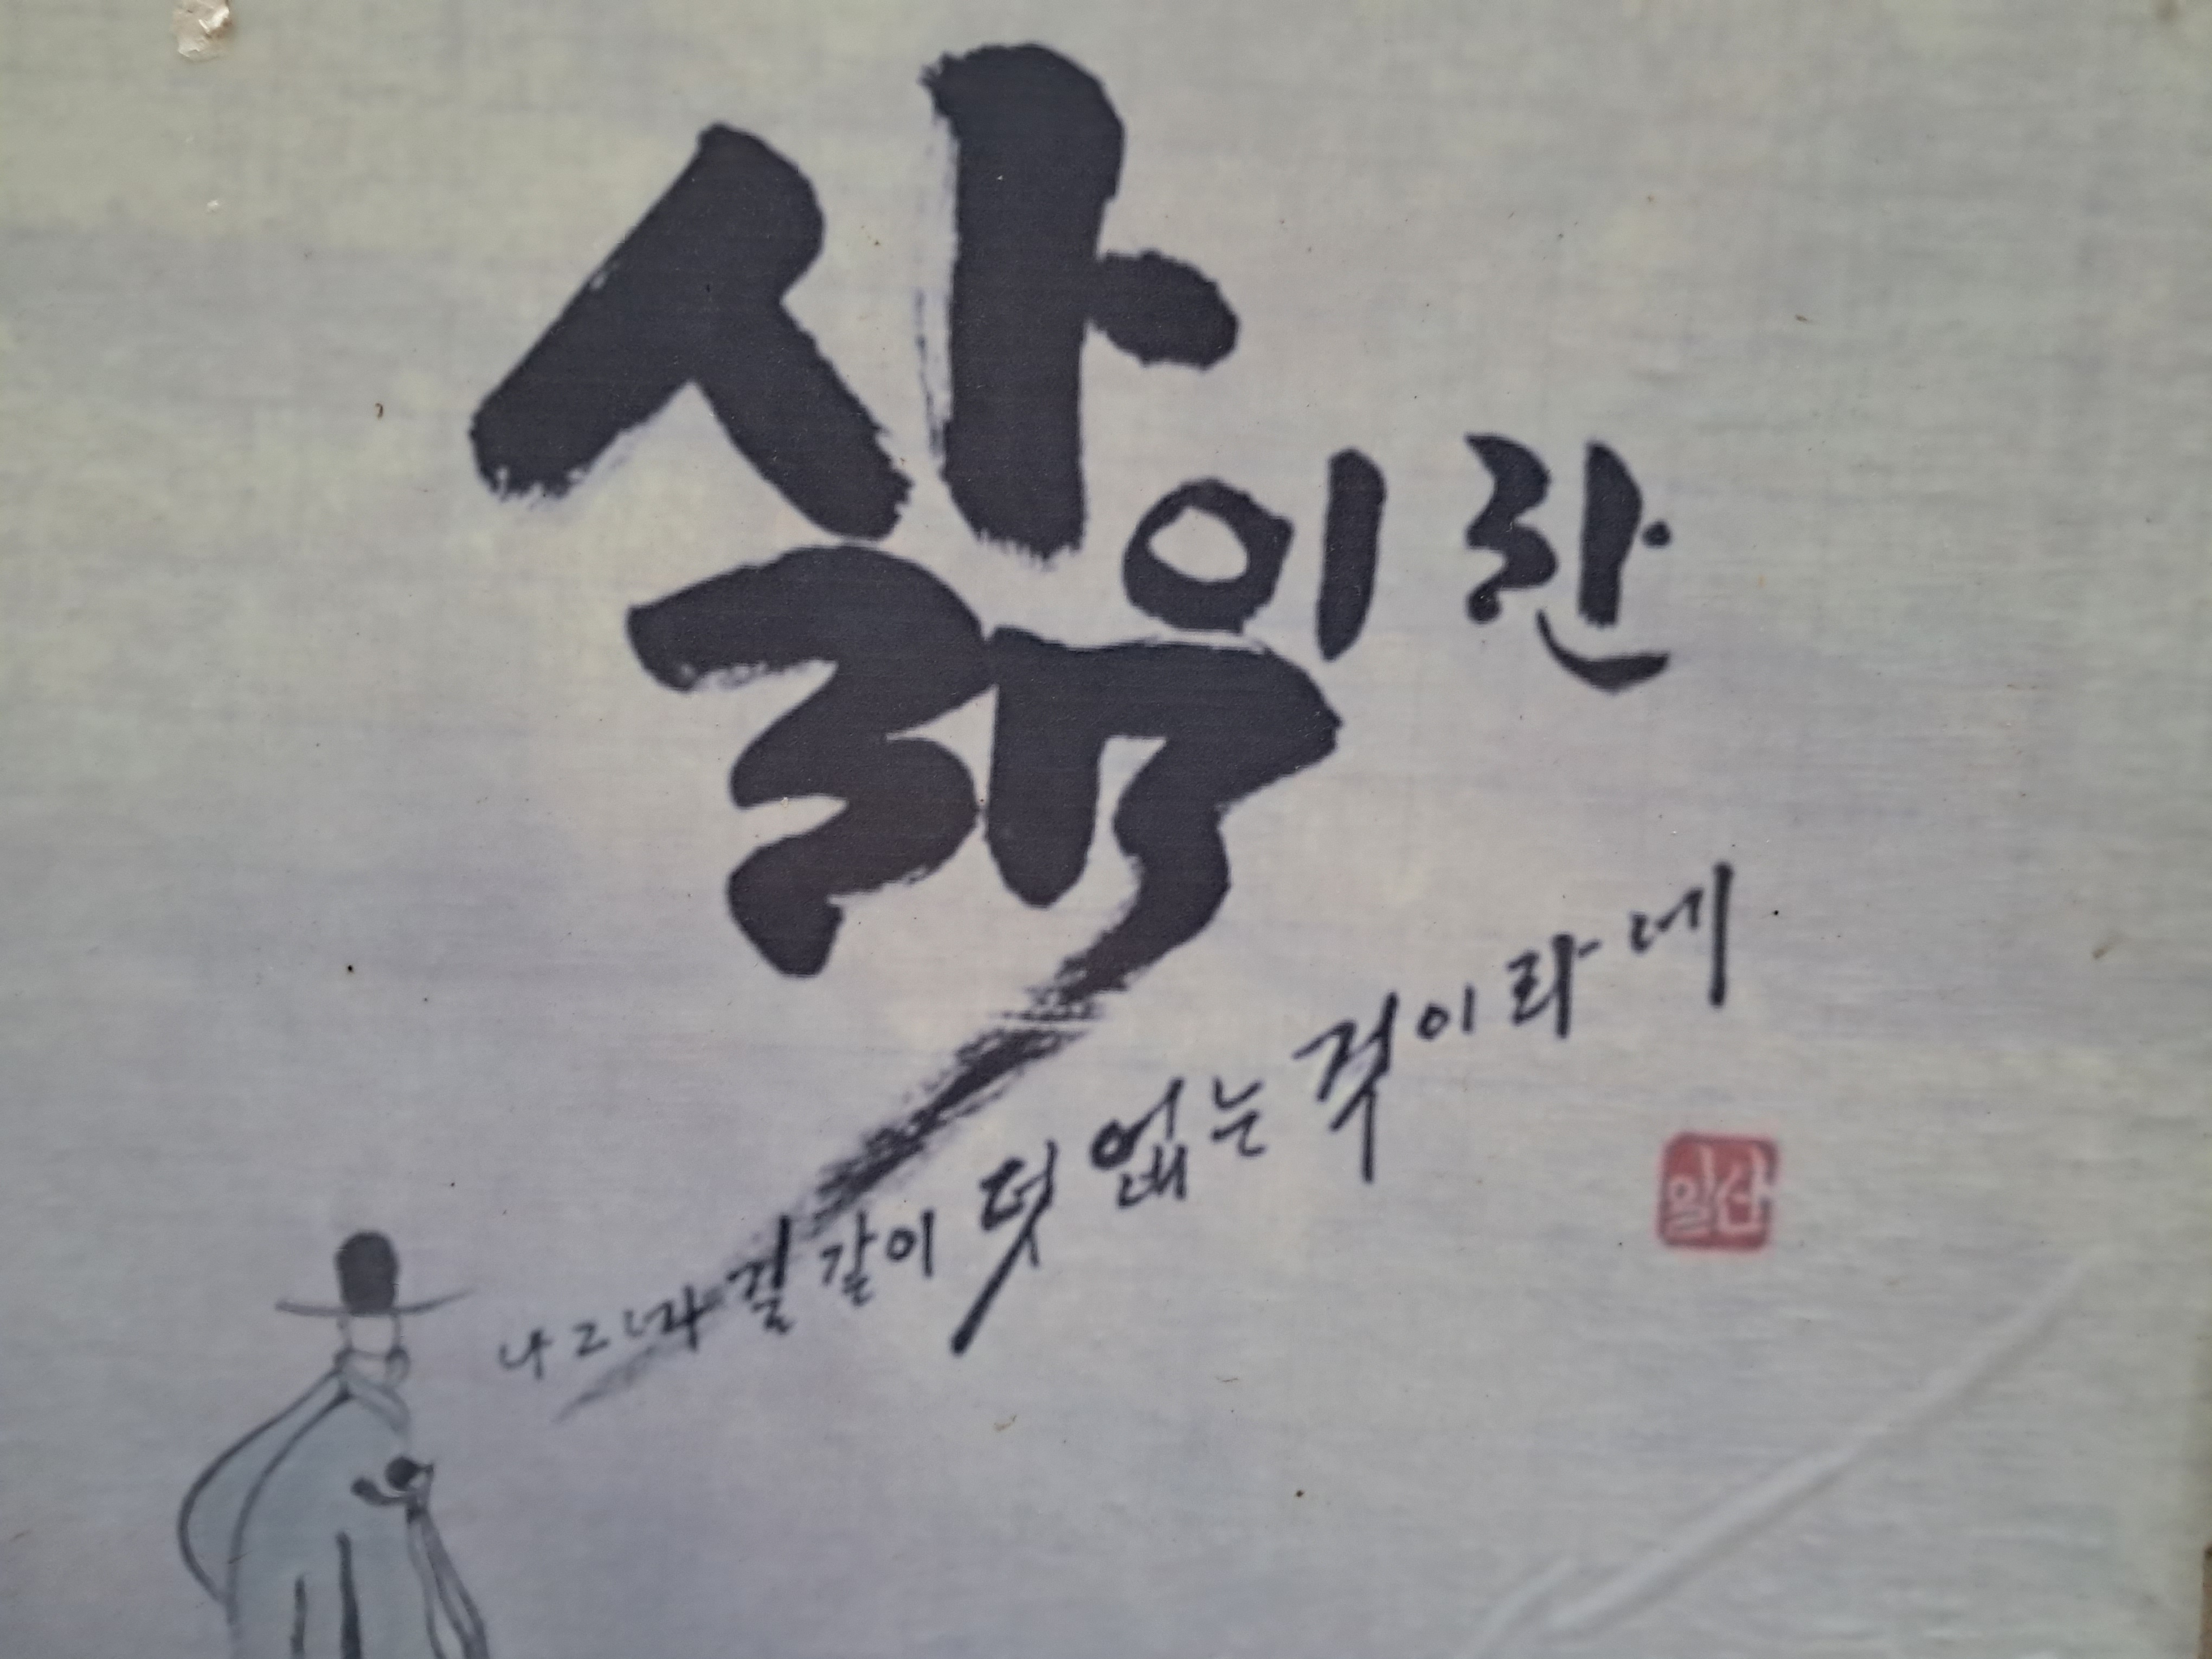 삶이란
나그네 길 같이 덧없는 것이라네
일산